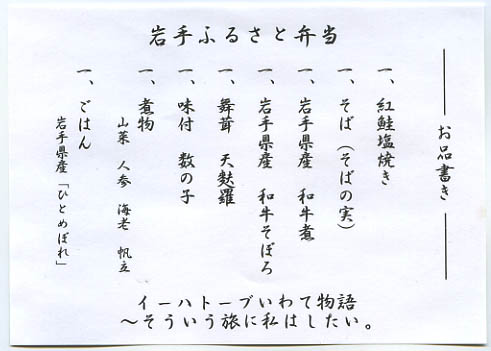 岩手ふるさと弁当
お品書き
一、紅鮭塩焼き
一、そば(そばの実)
一、岩手県産 和牛煮
一、岩手県産 和牛そぼろ
一、舞茸 天麩羅
一、味付 数の子
一、煮物
山菜 人参 海老 帆立
一、ごはん
岩手県産「ひとめぼれ」
イーハトーブいわて物語
～そういう旅に私はしたい。